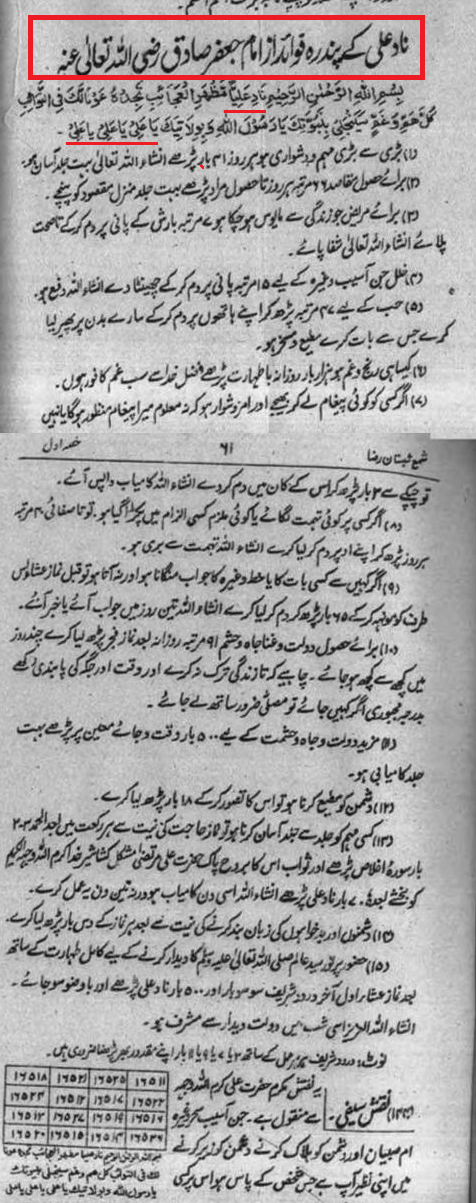 ناد علی کے پندرہ فوائد از امام جعفر صادق رضی اللہ تعالیٰ عنہ
بِسْمِ اللهِ الرَّحْمٰنِ الرَّحِيْمِ نَادِ عَلِيًّا مَظْهَرَ الْعَجَائِبِ تَجِدْهُ عَوْنًا لَكَ فِي النَّوَائِبِ
كُلُّ هَمٍّ وَغَمٍّ سَيَنْجَلِيْ بِنُبُوَّتِكَ يَا رَسُوْلَ اللهِ وَبِوِلَايَتِكَ يَا عَلِيُّ يَا عَلِيُّ يَا عَلِيُّ۔
(۱) بڑی سے بڑی مہم و دشواری ہو ہر روز ۴۱ بار پڑھے انشاء اللہ تعالیٰ بہت جلد آسان ہو۔
(۲) برائے حصول مقاصد ۶۶ مرتبہ ہر روز تا حصول مراد پڑھے بہت جلد منزل مقصود کو پہنچے۔
(۳) برائے مریض جو زندگی سے مایوس ہو چکا ہو ۷۰ مرتبہ بارش کے پانی پر دم کر کے تا صحت
پلائے انشاء اللہ تعالیٰ شفا پائے۔
(۴) خلل جن آسیب وغیرہ کے لیے ۱۵ مرتبہ پانی پر دم کر کے چھینٹا دے انشاء اللہ دفع ہو۔
(۵) حب کے لیے ۴۷ مرتبہ پڑھ کر اپنے ہاتھوں پر دم کر کے سارے بدن پر پھیر لیا
کرے جس سے بات کرے مطیع و مسخر ہو۔
(۶) کیسا ہی رنج و غم ہو ہزار بار روزانہ با طہارت پڑھے فضل خدا سے سب غم کافور ہوں۔
(۷) اگر کسی کو کوئی پیغام لے کر بھیجے اور امر دشوار ہو کہ نہ معلوم میرا پیغام منظور ہو گا یا نہیں
شمع شبستان رضا ۶۱ حصہ اول
تو چپکے سے ۳ بار پڑھ کر اس کے کان میں دم کر دے انشاء اللہ کامیاب واپس آئے۔
(۸) اگر کسی پر کوئی تہمت لگائے یا کوئی ملزم کسی الزام میں پکڑا گیا ہو۔ تو تا صفائی ۴۰ مرتبہ
ہر روز پڑھ کر اپنے اوپر دم کر لیا کرے انشاء اللہ تہمت سے بری ہو۔
(۹) اگر کہیں سے کسی بات کا یا خط وغیرہ کا جواب منگانا ہو اور نہ آتا ہو تو قبل نماز عشاء اس
طرف کو مونہہ کر کے ۶۵ بار پڑھ کر دم کر لیا کرے انشاء اللہ تین روز میں جواب آئے یا خبر آئے۔
(۱۰) برائے حصول دولت و غنا جاہ و حشم ۹۱ مرتبہ روزانہ بعد نماز فجر پڑھ لیا کرے چند روز
میں کچھ سے کچھ ہو جائے۔ چاہیے کہ تا زندگی ترک نہ کرے اور وقت اور جگہ کی پابندی رکھے
بدرجہ مجبوری اگر کہیں جائے تو مصلیٰ ضرور ساتھ لے جائے۔
(۱۱) مزید دولت و جاہ و حشمت کے لیے ۵۰۰ بار وقت و جائے معین پر پڑھے بہت
جلد کامیابی ہو۔
(۱۲) دشمن کو مطیع کرنا ہو تو اس کا تصور کر کے ۱۸ بار پڑھ لیا کرے۔
(۱۳) کسی مہم کو جلد سے جلد آسان کرنا ہو تو نماز حاجت کی نیت سے ہر رکعت میں بعد الحمد ۲۰۳
بار سورۂ اخلاص پڑھے اور ثواب اس کا بروح پاک حضرت علی مرتضیٰ مشکل کشا شیر خدا کرم اللہ وجہہ الکریم
کو بخشے بعدہٗ ۷۰ بار ناد علی پڑھے انشاء اللہ اسی دن کامیاب ہو ورنہ تین دن یہ عمل کرے۔
(۱۴) دشمنوں اور بدخواہوں کی زبان بند کرنے کی نیت سے بعد ہر نماز کے دس بار پڑھ لیا کرے۔
(۱۵) حضور پر نور سید عالم صلی اللہ تعالیٰ علیہ وسلم کا دیدار کرنے کے لیے کامل طہارت کے ساتھ
بعد نماز عشاء اول آخر درود شریف سو سو بار اور ۵۰۰ بار ناد علی پڑھے اور با وضو سو جائے۔
انشاء اللہ العزیز اسی شب میں دولت دیدار سے مشرف ہو۔
نوٹ: درود شریف ہر عمل کے ساتھ ۳ یا ۷ یا ۹ یا ۱۱ بار اپنے مقدور بھر پڑھنا ضروری ہیں۔
نقش سیفی۔ یہ نقش مکرم حضرت علی کرم اللہ وجہہ
سے منقول ہے۔ جن آسیب سحر وغیرہ
ام صبیان اور دشمن کو ہلاک کرنے دشمن کو زیر کرنے
میں اپنی نظیر آپ ہے جس شخص کے پاس ہو اس پر کسی